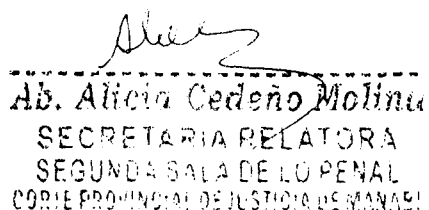 Ab. Alicia Cedeño Molina
SECRETARIA RELATORA
SEGUNDA SALA DE LO PENAL
CORTE PROVINCIAL DE JUSTICIA DE MANABI